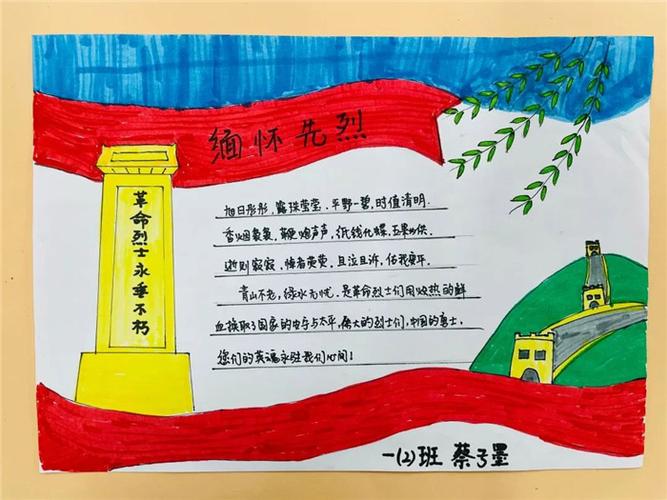 缅怀先烈
革命烈士永垂不朽
旭日彤彤，露珠莹莹，平野一碧，时值清明.
香烟袅袅，鞭炮声声，纸钱化蝶，五果
逝则寂寂，悼者茕茕，且泣且诉，佑我
青山不老，绿水无忧，是革命烈士们用炽热的鲜
血换取了国家的安宁与太平，伟大的烈士们，中国的勇士，
您们的英魂永驻我们心间！
一(2)班 蔡子墨